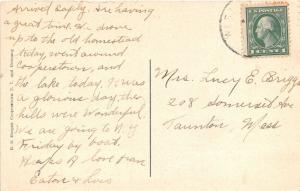 Arrived safely. Are having
a great time. We drove
up to the old homestead
today, went around
Cooperstown, and
the lake today. It was
a glorious day, the
hills were wonderful.
We are going to N.Y
Friday by boat.
Heaps of love from
Eaton & Lois
Mrs. Lucy E. Briggs
208 Somerset Ave
Taunton, Mass
1 CENT 1